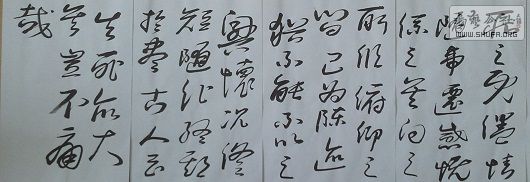 所之既倦情
隨事遷感慨
係之矣向之
所欣俯仰之
間已為陳迹
猶不能不以之
興懷況修
短隨化終期
於盡古人云
生死亦大
矣豈不痛
哉
WWW.SHUFA.ORG